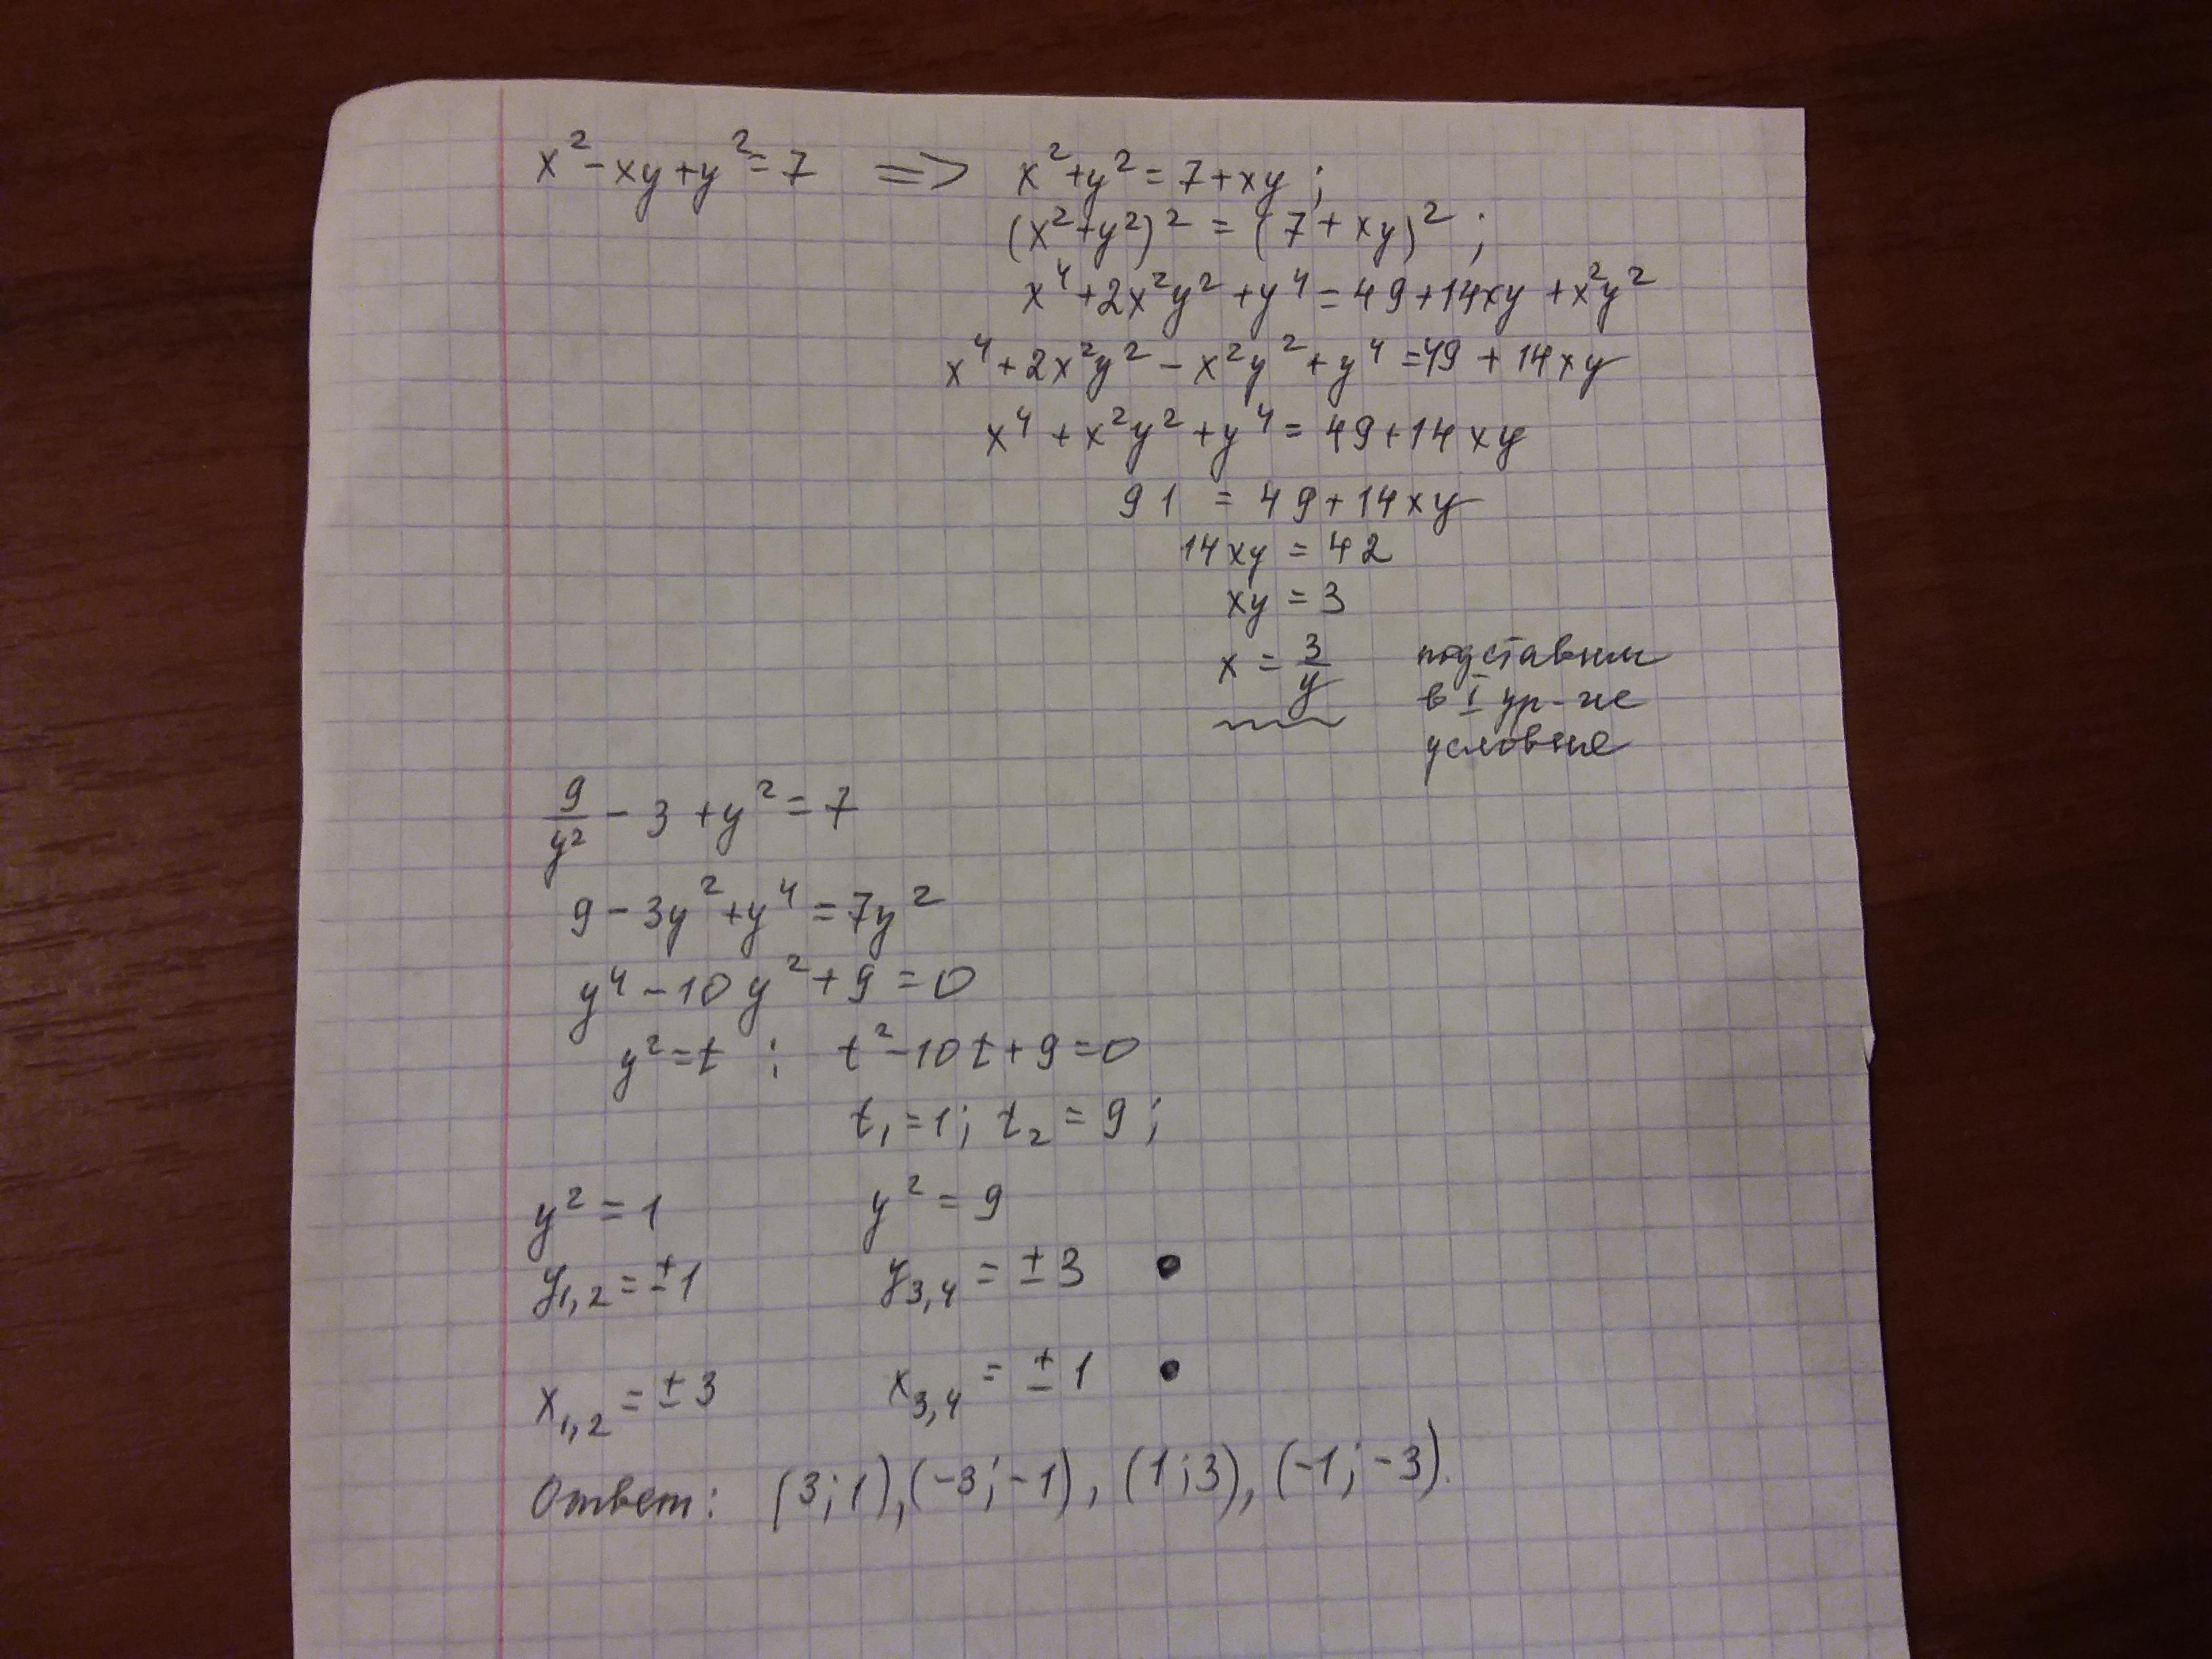 x² - xy + y² = 7 => x² + y² = 7 + xy ;
(x² + y²)² = (7 + xy)² ;
x⁴ + 2x²y² + y⁴ = 49 + 14xy + x²y²
x⁴ + 2x²y² - x²y² + y⁴ = 49 + 14xy
x⁴ + x²y² + y⁴ = 49 + 14xy
91 = 49 + 14xy
14xy = 42
xy = 3
x = 3/y подставим
в I ур-ие
условие
9/y² - 3 + y² = 7
9 - 3y² + y⁴ = 7y²
y⁴ - 10y² + 9 = 0
y² = t ; t² - 10t + 9 = 0
t₁ = 1; t₂ = 9 ;
y² = 1 y² = 9
y₁,₂ = ±1 y₃,₄ = ±3 •
x₁,₂ = ±3 x₃,₄ = ±1 •
Ответ: (3; 1), (-3; -1), (1; 3), (-1; -3).